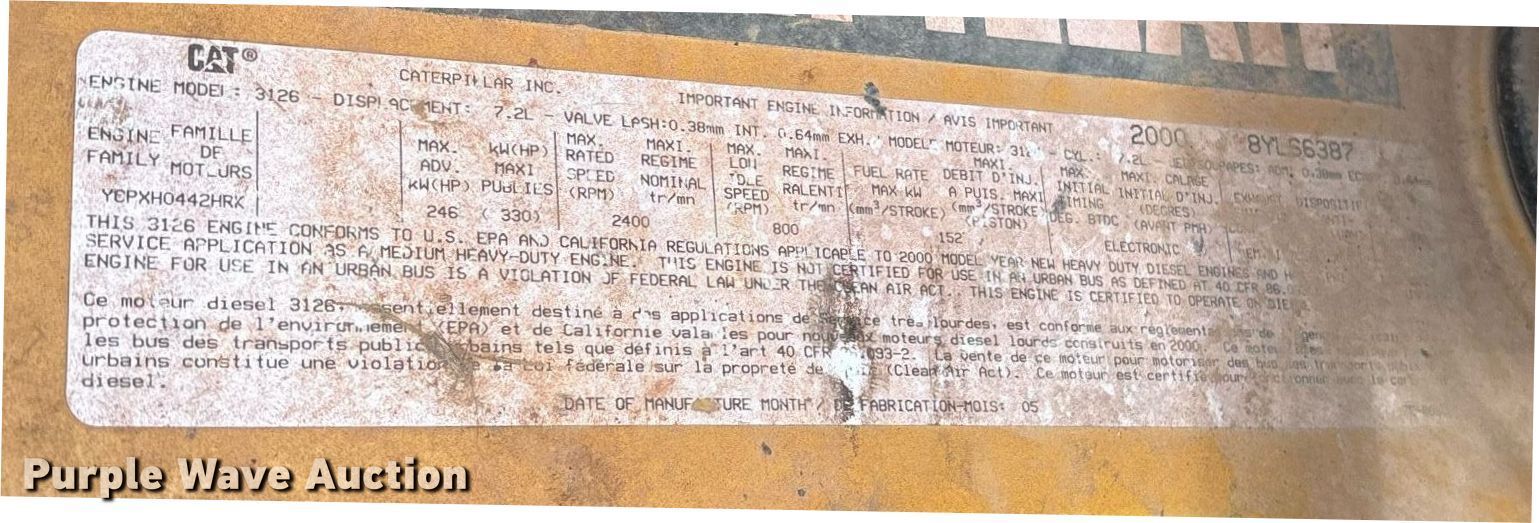 CAT®
CATERPILLAR INC.
IMPORTANT ENGINE INFORMATION / AVIS IMPORTANT
2000 8YLS6387
ENGINE MODEL: 3126 - DISPLACEMENT: 7.2L - VALVE LASH:0.38mm INT. 0.64mm EXH. MODELE MOTEUR: - CYL.: 7.2L - ADM. 0.38mm
ENGINE FAMILY
FAMILLE DE MOTEURS
YCPXH0442HRK
MAX. ADV. kW(HP)
kW(HP) MAXI PUBLIES
246 (330)
MAX. RATED SPEED (RPM)
MAXI. REGIME NOMINAL tr/mn
2400
MAX. LOW IDLE SPEED (RPM)
MAXI. REGIME RALENTI tr/mn
800
FUEL RATE MAX KW (mm³/STROKE)
DEBIT D'INJ. MAXI A PUIS. MAXI (mm³/STROKE PISTON)
152
MAX. INITIAL TIMING DEG. BTDC
MAXI. CALAGE INITIAL D'INJ. (DEGRES) (AVANT PMH)
ELECTRONIC
THIS 3126 ENGINE CONFORMS TO U.S. EPA AND CALIFORNIA REGULATIONS APPLICABLE TO 2000 MODEL YEAR NEW HEAVY DUTY DIESEL ENGINES AND
SERVICE APPLICATION AS A MEDIUM HEAVY-DUTY ENGINE. THIS ENGINE IS NOT CERTIFIED FOR USE IN AN URBAN BUS AS DEFINED AT 40 CFR 86.
ENGINE FOR USE IN AN URBAN BUS IS A VIOLATION OF FEDERAL LAW UNDER THE CLEAN AIR ACT. THIS ENGINE IS CERTIFIED TO OPERATE ON
Ce moteur diesel 3126, essentiellement destiné à des applications de service tres lourdes, est conforme aux reglements de
protection de l'environnement (EPA) et de California valables pour nouveaux moteurs diesel lourds construits en 2000. Ce
les bus des transports public urbains tels que définis à l'art 40 CFR 093-2. La vente de ce moteur pour motoriser des bus
urbains constitue une violation de la loi fédérale sur la propreté de (Clean Air Act). Ce moteur est certifié pour
diesel.
DATE OF MANUFACTURE MONTH / DE FABRICATION-MOIS: 05
Purple Wave Auction